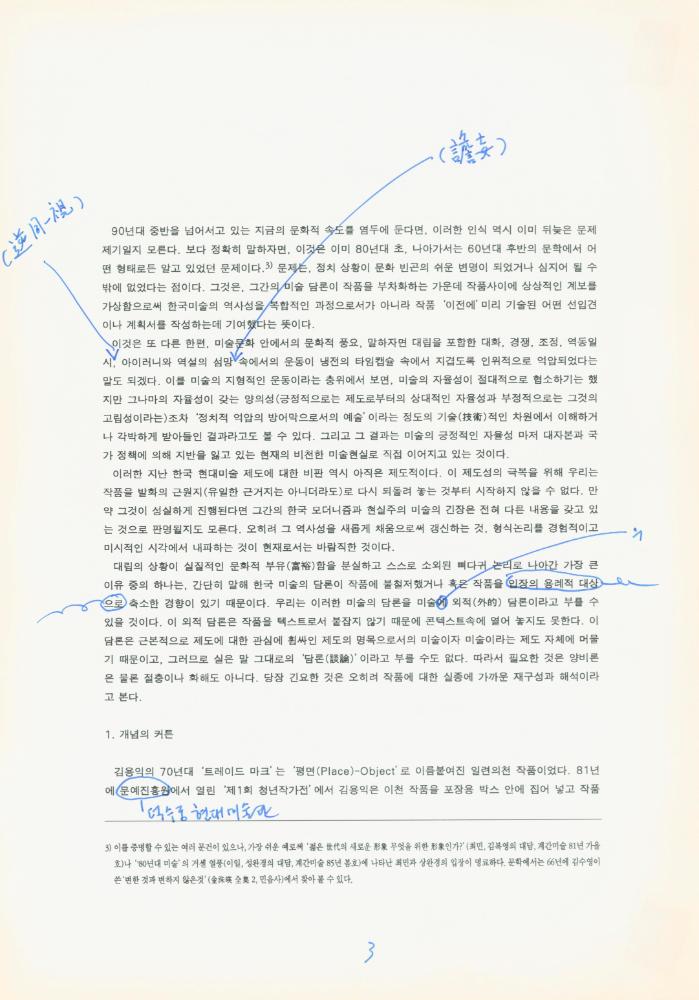 (譫妄)
(逆同一視)
90년대 중반을 넘어서고 있는 지금의 문화적 속도를 염두에 둔다면, 이러한 인식 역시 이미 뒤늦은 문제
제기일지 모른다. 보다 정확히 말하자면, 이것은 이미 80년대 초, 나아가서는 60년대 후반의 문학에서 어
떤 형태로든 알고 있었던 문제이다.3) 문제는, 정치 상황이 문화 빈곤의 쉬운 변명이 되었거나 심지어 될 수
밖에 없었다는 점이다. 그것은, 그간의 미술 담론이 작품을 부차화하는 가운데 작품사이에 상상적인 계보를
가상함으로써 한국미술의 역사성을 복합적인 과정으로서가 아니라 작품 ‘이전에’ 미리 기술된 어떤 선입견
이나 계획서를 작성하는데 기여했다는 뜻이다.
이것은 또 다른 한편, 미술문화 안에서의 문화적 풍요, 말하자면 대립을 포함한 대화, 경쟁, 조정, 역동일
시, 아이러니와 역설의 섬망 속에서의 운동이 냉전의 타임캡슐 속에서 지겹도록 인위적으로 억압되었다는
말도 되겠다. 이를 미술의 지형적인 운동이라는 층위에서 보면, 미술의 자율성이 절대적으로 협소하기는 했
지만 그나마의 자율성이 갖는 양의성(긍정적으로는 제도로부터의 상대적인 자율성과 부정적으로는 그것의
고립성이라는)조차 ‘정치적 억압의 방어막으로서의 예술’이라는 정도의 기술(技術)적인 차원에서 이해하거
나 각박하게 받아들인 결과라고도 볼 수 있다. 그리고 그 결과는 미술의 긍정적인 자율성 마저 대자본과 국
가 정책에 의해 지반을 잃고 있는 현재의 비천한 미술현실로 직접 이어지고 있는 것이다.
이러한 지난 한국 현대미술 제도에 대한 비판 역시 아직은 제도적이다. 이 제도성의 극복을 위해 우리는
작품을 발화의 근원지(유일한 근거지는 아니더라도)로 다시 되돌려 놓는 것부터 시작하지 않을 수 없다. 만
약 그것이 성실하게 진행된다면 그간의 한국 모더니즘과 현실주의 미술의 긴장은 전혀 다른 내용을 갖고 있
는 것으로 판명될지도 모른다. 오히려 그 역사성을 새롭게 채움으로써 갱신하는 것, 형식논리를 경험적이고
미시적인 시각에서 내파하는 것이 현재로서는 바람직한 것이다.
대립의 상황이 실질적인 문화적 부유(富裕)함을 분실하고 스스로 소외된 뼈다귀 논리로 나아간 가장 큰
이유 중의 하나는, 간단히 말해 한국 미술의 담론이 작품에 불철저했거나 혹은 작품을 입장의 응례적 대상
으로 축소한 경향이 있기 때문이다. 우리는 이러한 미술의 담론을 미술에 외적(外的) 담론이라고 부를 수
있을 것이다. 이 외적 담론은 작품을 텍스트로서 붙잡지 않기 때문에 콘텍스트속에 열어 놓지도 못한다. 이
담론은 근본적으로 제도에 대한 관심에 휩싸인 제도의 명목으로서의 미술이자 미술이라는 제도 자체에 머물
기 때문이고, 그러므로 실은 말 그대로의 ‘담론(談論)’이라고 부를 수도 없다. 따라서 필요한 것은 양비론
은 물론 절충이나 화해도 아니다. 당장 긴요한 것은 오히려 작품에 대한 실종에 가까운 재구성과 해석이라
고 본다.
1. 개념의 커튼
김용익의 70년대 ‘트레이드 마크’는 ‘평면(Place)-Object’로 이름붙여진 일련의천 작품이었다. 81년
에 문예진흥원에서 열린 ‘제1회 청년작가전’에서 김용익은 이천 작품을 포장용 박스 안에 집어 넣고 작품
덕수궁 현대미술관
3) 이를 증명할 수 있는 여러 문건이 있으나, 가장 쉬운 예로써 ‘젊은 世代의 새로운 形象 무엇을 위한 形象인가?’(최민, 김복영의 대담, 계간미술 81년 가을
호)나 ‘80년대 미술’의 거센 열풍(이일, 성완경의 대담, 계간미술 85년 봄호)에 나타난 최민과 상완경의 입장이 명료하다. 문학에서는 66년에 김수영이
쓴 ‘변한 것과 변하지 않은것’(金洙暎 全集 2, 민음사)에서 찾아 볼 수 있다.
3